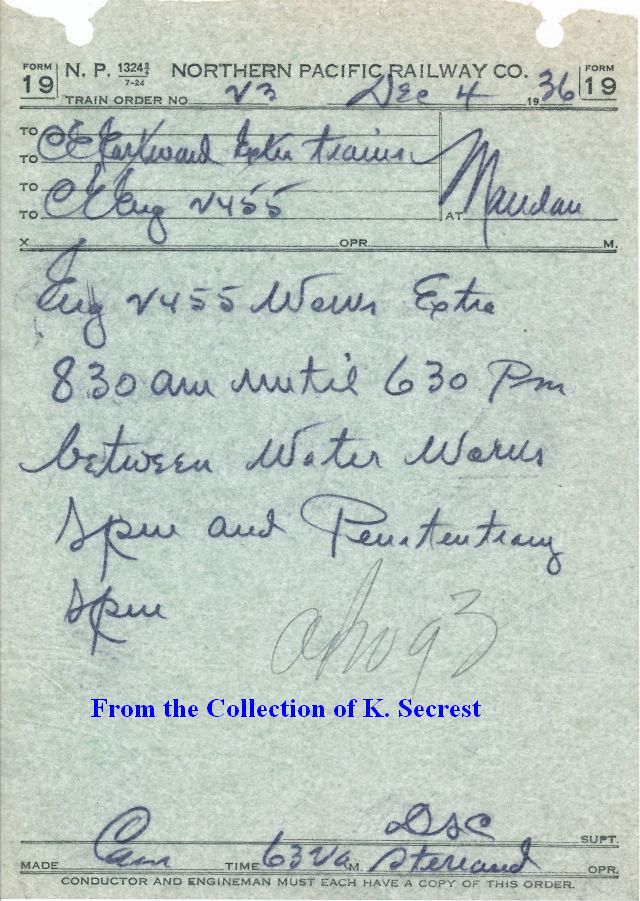 FORM 19 N. P. 1324 3/4 7-24 NORTHERN PACIFIC RAILWAY CO. FORM 19
TRAIN ORDER NO. 23 Dec 4 1936
TO
TO C&E Eastward Extra trains
TO
TO C&E Eng 2455 AT Mandan
X OPR. M.
Eng 2455 Works Extra
830 am until 630 Pm
between Water Works
Spur and Penitentiary
Spur
From the Collection of K. Secrest
DSC SUPT.
MADE Com TIME 632a M. OPR.
CONDUCTOR AND ENGINEMAN MUST EACH HAVE A COPY OF THIS ORDER.